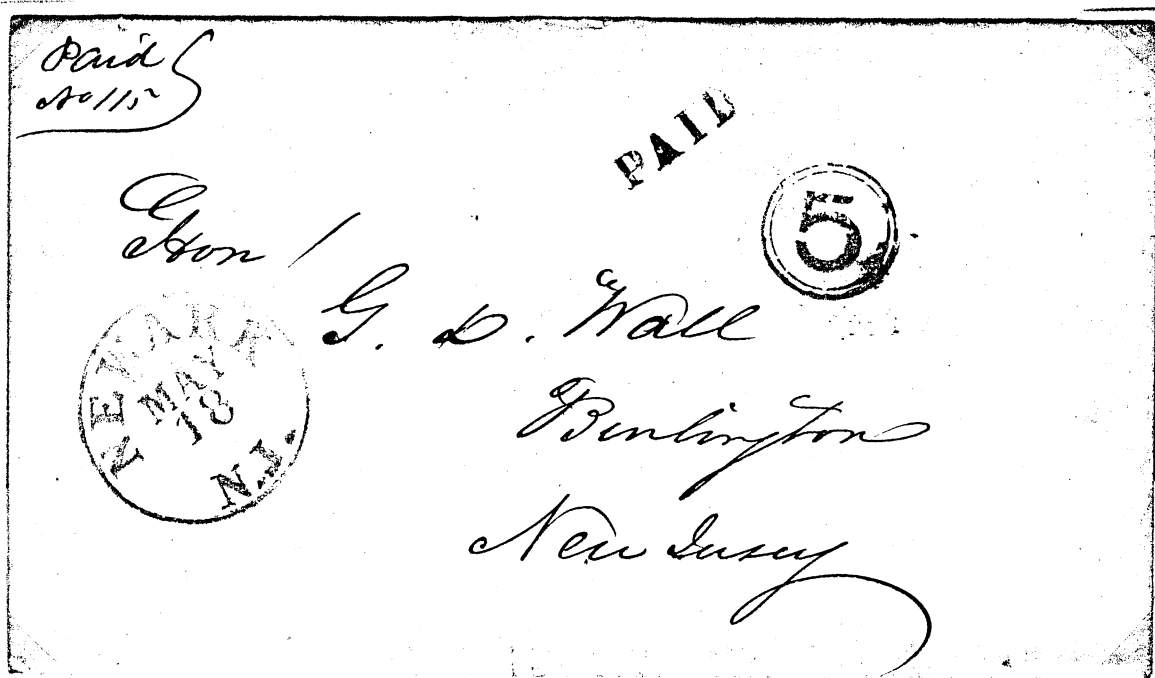 Paid
No 115
PAID
5
Hon
G. D. Wall
Burlington
New Jersey
NEWARK
MAY
18
N.J.